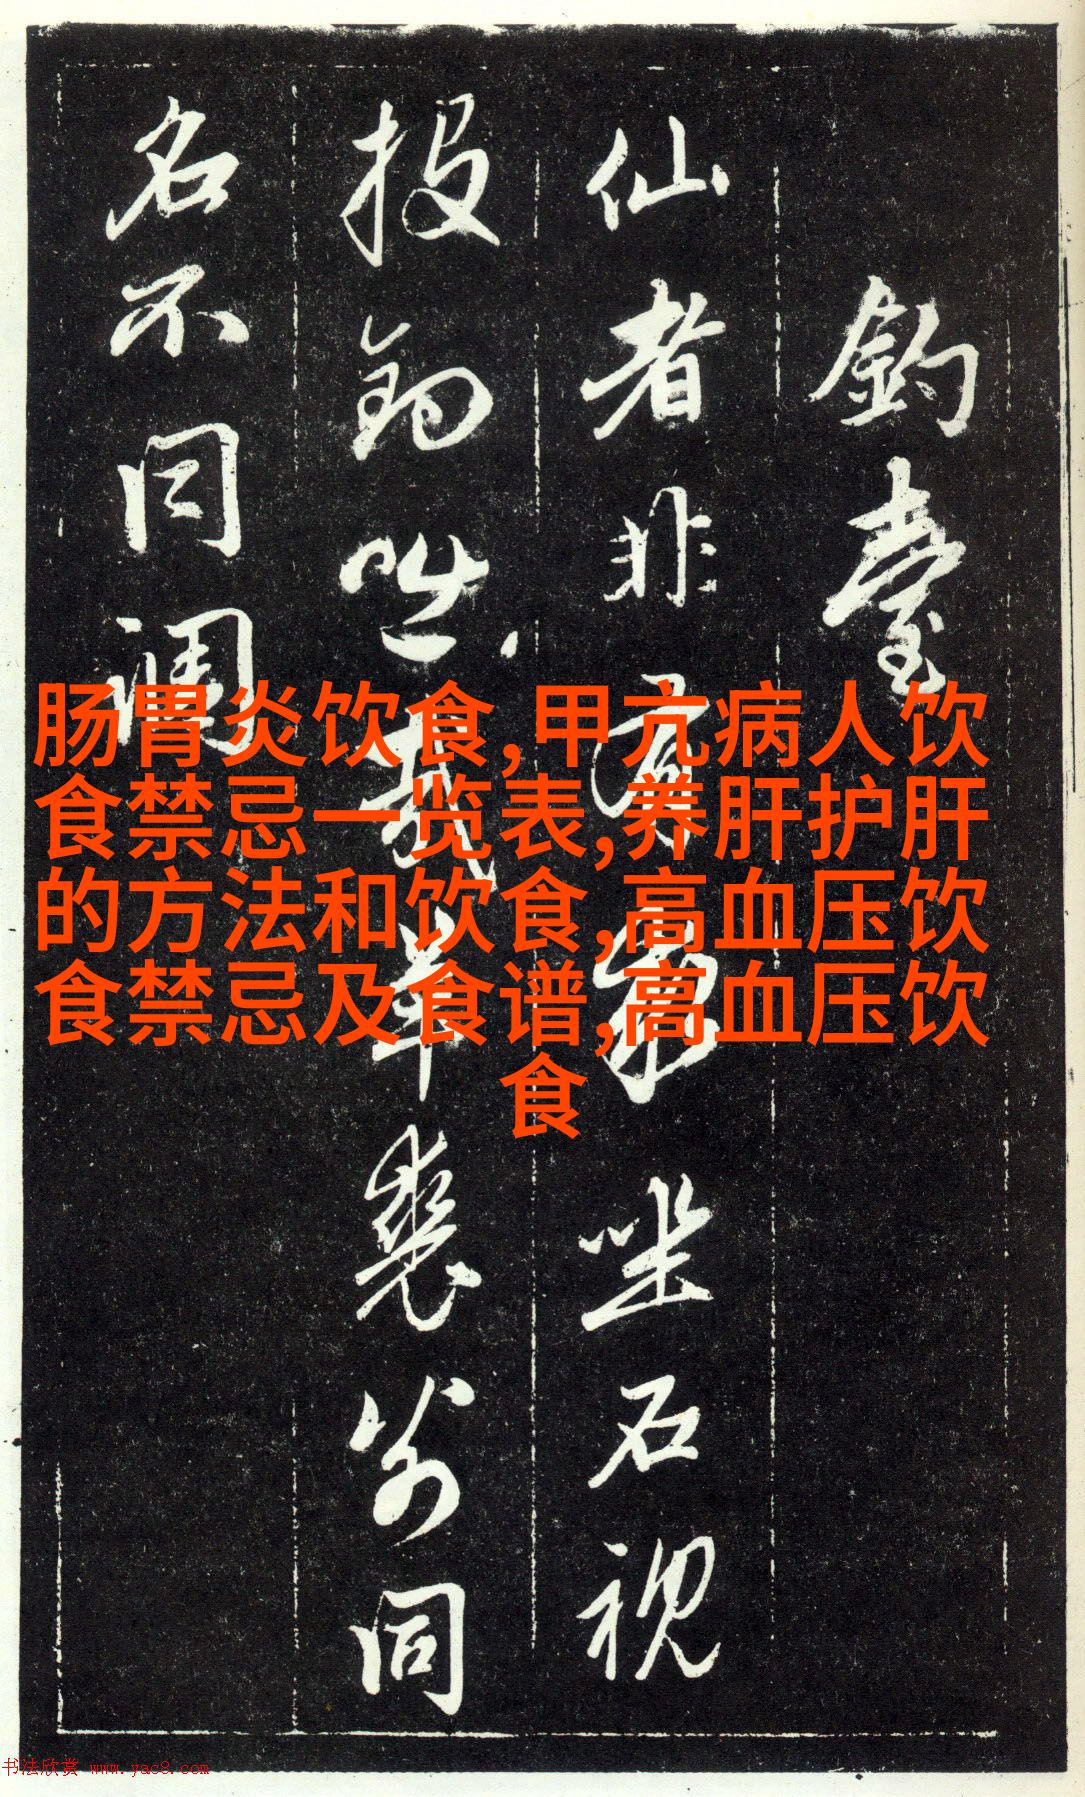 釣臺
仙者非有家坐石視
投釣咄哉羊裘翁同
名不同調
肠胃炎饮食,甲亢病人饮
食禁忌一览表,养肝护肝
的方法和饮食,高血压饮
食禁忌及食谱,高血压饮
食
书法欣赏 www.yac8.com